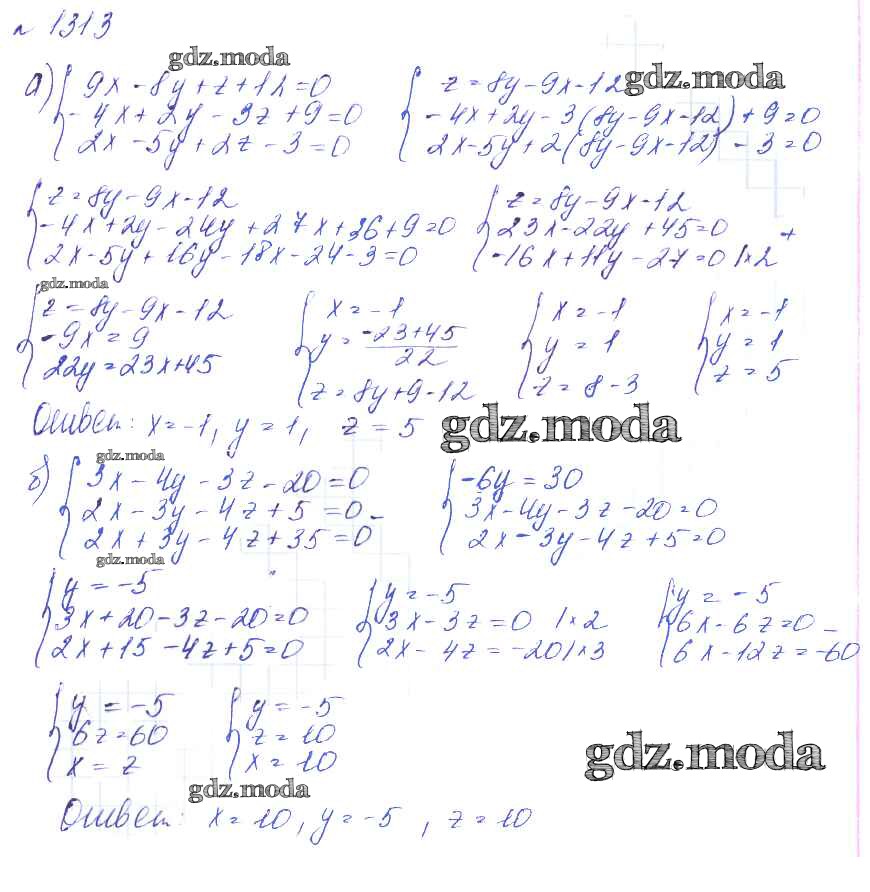 № 1313
gdz.moda
а) { 9x - 8y + z + 12 = 0
- 4x + 2y - 3z + 9 = 0
2x - 5y + 2z - 3 = 0
{ z = 8y - 9x - 12
gdz.moda
- 4x + 2y - 3(8y - 9x - 12) + 9 = 0
2x - 5y + 2(8y - 9x - 12) - 3 = 0
{ z = 8y - 9x - 12
- 4x + 2y - 24y + 27x + 36 + 9 = 0
2x - 5y + 16y - 18x - 24 - 3 = 0
{ z = 8y - 9x - 12
23x - 22y + 45 = 0 +
-16x + 11y - 27 = 0 | × 2
gdz.moda
{ z = 8y - 9x - 12
- 9x = 9
22y = 23x + 45
{ x = -1
y = -23+45 / 22
z = 8y + 9 - 12
{ x = -1
y = 1
z = 8 - 3
{ x = -1
y = 1
z = 5
Ответ: x = -1, y = 1, z = 5
gdz.moda
gdz.moda
б) { 3x - 4y - 3z - 20 = 0
2x - 3y - 4z + 5 = 0 -
2x + 3y - 4z + 35 = 0
{ -6y = 30
3x - 4y - 3z - 20 = 0
2x - 3y - 4z + 5 = 0
gdz.moda
{ y = -5
3x + 20 - 3z - 20 = 0
2x + 15 - 4z + 5 = 0
{ y = -5
3x - 3z = 0 | × 2
2x - 4z = -20 | × 3
{ y = -5
6x - 6z = 0 -
6x - 12z = -60
{ y = -5
6z = 60
x = z
{ y = -5
z = 10
x = 10
gdz.moda
gdz.moda
Ответ: x = 10, y = -5, z = 10